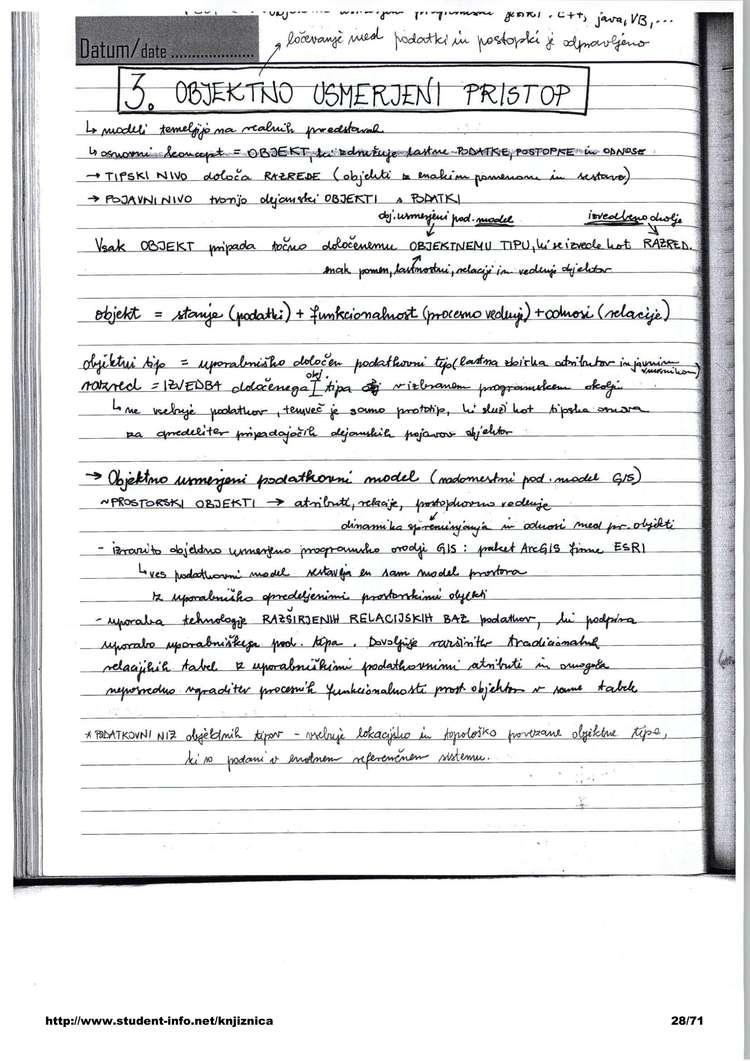 java, VB, ...
Datum/date ....................
ločevanje med podatki in postopki je odpravljeno
3. OBJEKTNO USMERJENI PRISTOP
↳ modeli temeljijo na realnih predstavah
↳ osnovni koncept = OBJEKT, ki združuje lastne PODATKE, POSTOPKE in ODNOSE
→ TIPSKI NIVO določa RAZREDE (objekti z enakim pomenom in sestavo)
→ POJAVNI NIVO tvorijo dejanski OBJEKTI s PODATKI
obj. usmerjeni pod. model izvedbeno okolje
Vsak OBJEKT pripada točno določenemu OBJEKTNEMU TIPU, ki se izvede kot RAZRED.
enak pomen, lastnosti, relacije in vedenje objektov
objekt = stanje (podatki) + funkcionalnost (procesno vedenje) + odnosi (relacije)
objektni tip = uporabniško določen podatkovni tip (lastna zbirka atributov in javnim vmesnikom)
razred = IZVEDBA določenega obj. tipa v izbranem programskem okolju
↳ ne vsebuje podatkov, temveč je samo prototip, ki služi kot tipska osnova
za opredelitev pripadajočih dejanskih pojavov objektov
→ Objektno usmerjeni podatkovni model (nadomestni pod. model GIS)
~PROSTORSKI OBJEKTI → atributi, relacije, postopkovno vedenje
dinamika spreminjanja in odnosi med pr. objekti
- izrazito objektno usmerjeno programsko orodje GIS : paket ArcGIS firme ESRI
↳ ves podatkovni model sestavlja en sam model prostora
z uporabniško opredeljenimi prostorskimi objekti
- uporaba tehnologije RAZŠIRJENIH RELACIJSKIH BAZ podatkov, ki podpira
uporabo uporabniškega pod. tipa. Dovoljuje razširitev tradicionalnih
relacijskih tabel z uporabniškimi podatkovnimi atributi in omogoča
neposredno vgraditev procesnih funkcionalnosti prost. objektov v same tabele
* PODATKOVNI NIZ objektnih tipov - vsebuje lokacijsko in topološko povezane objektne tipe,
ki so podani v enotnem referenčnem sistemu.
http://www.student-info.net/knjiznica 28/71